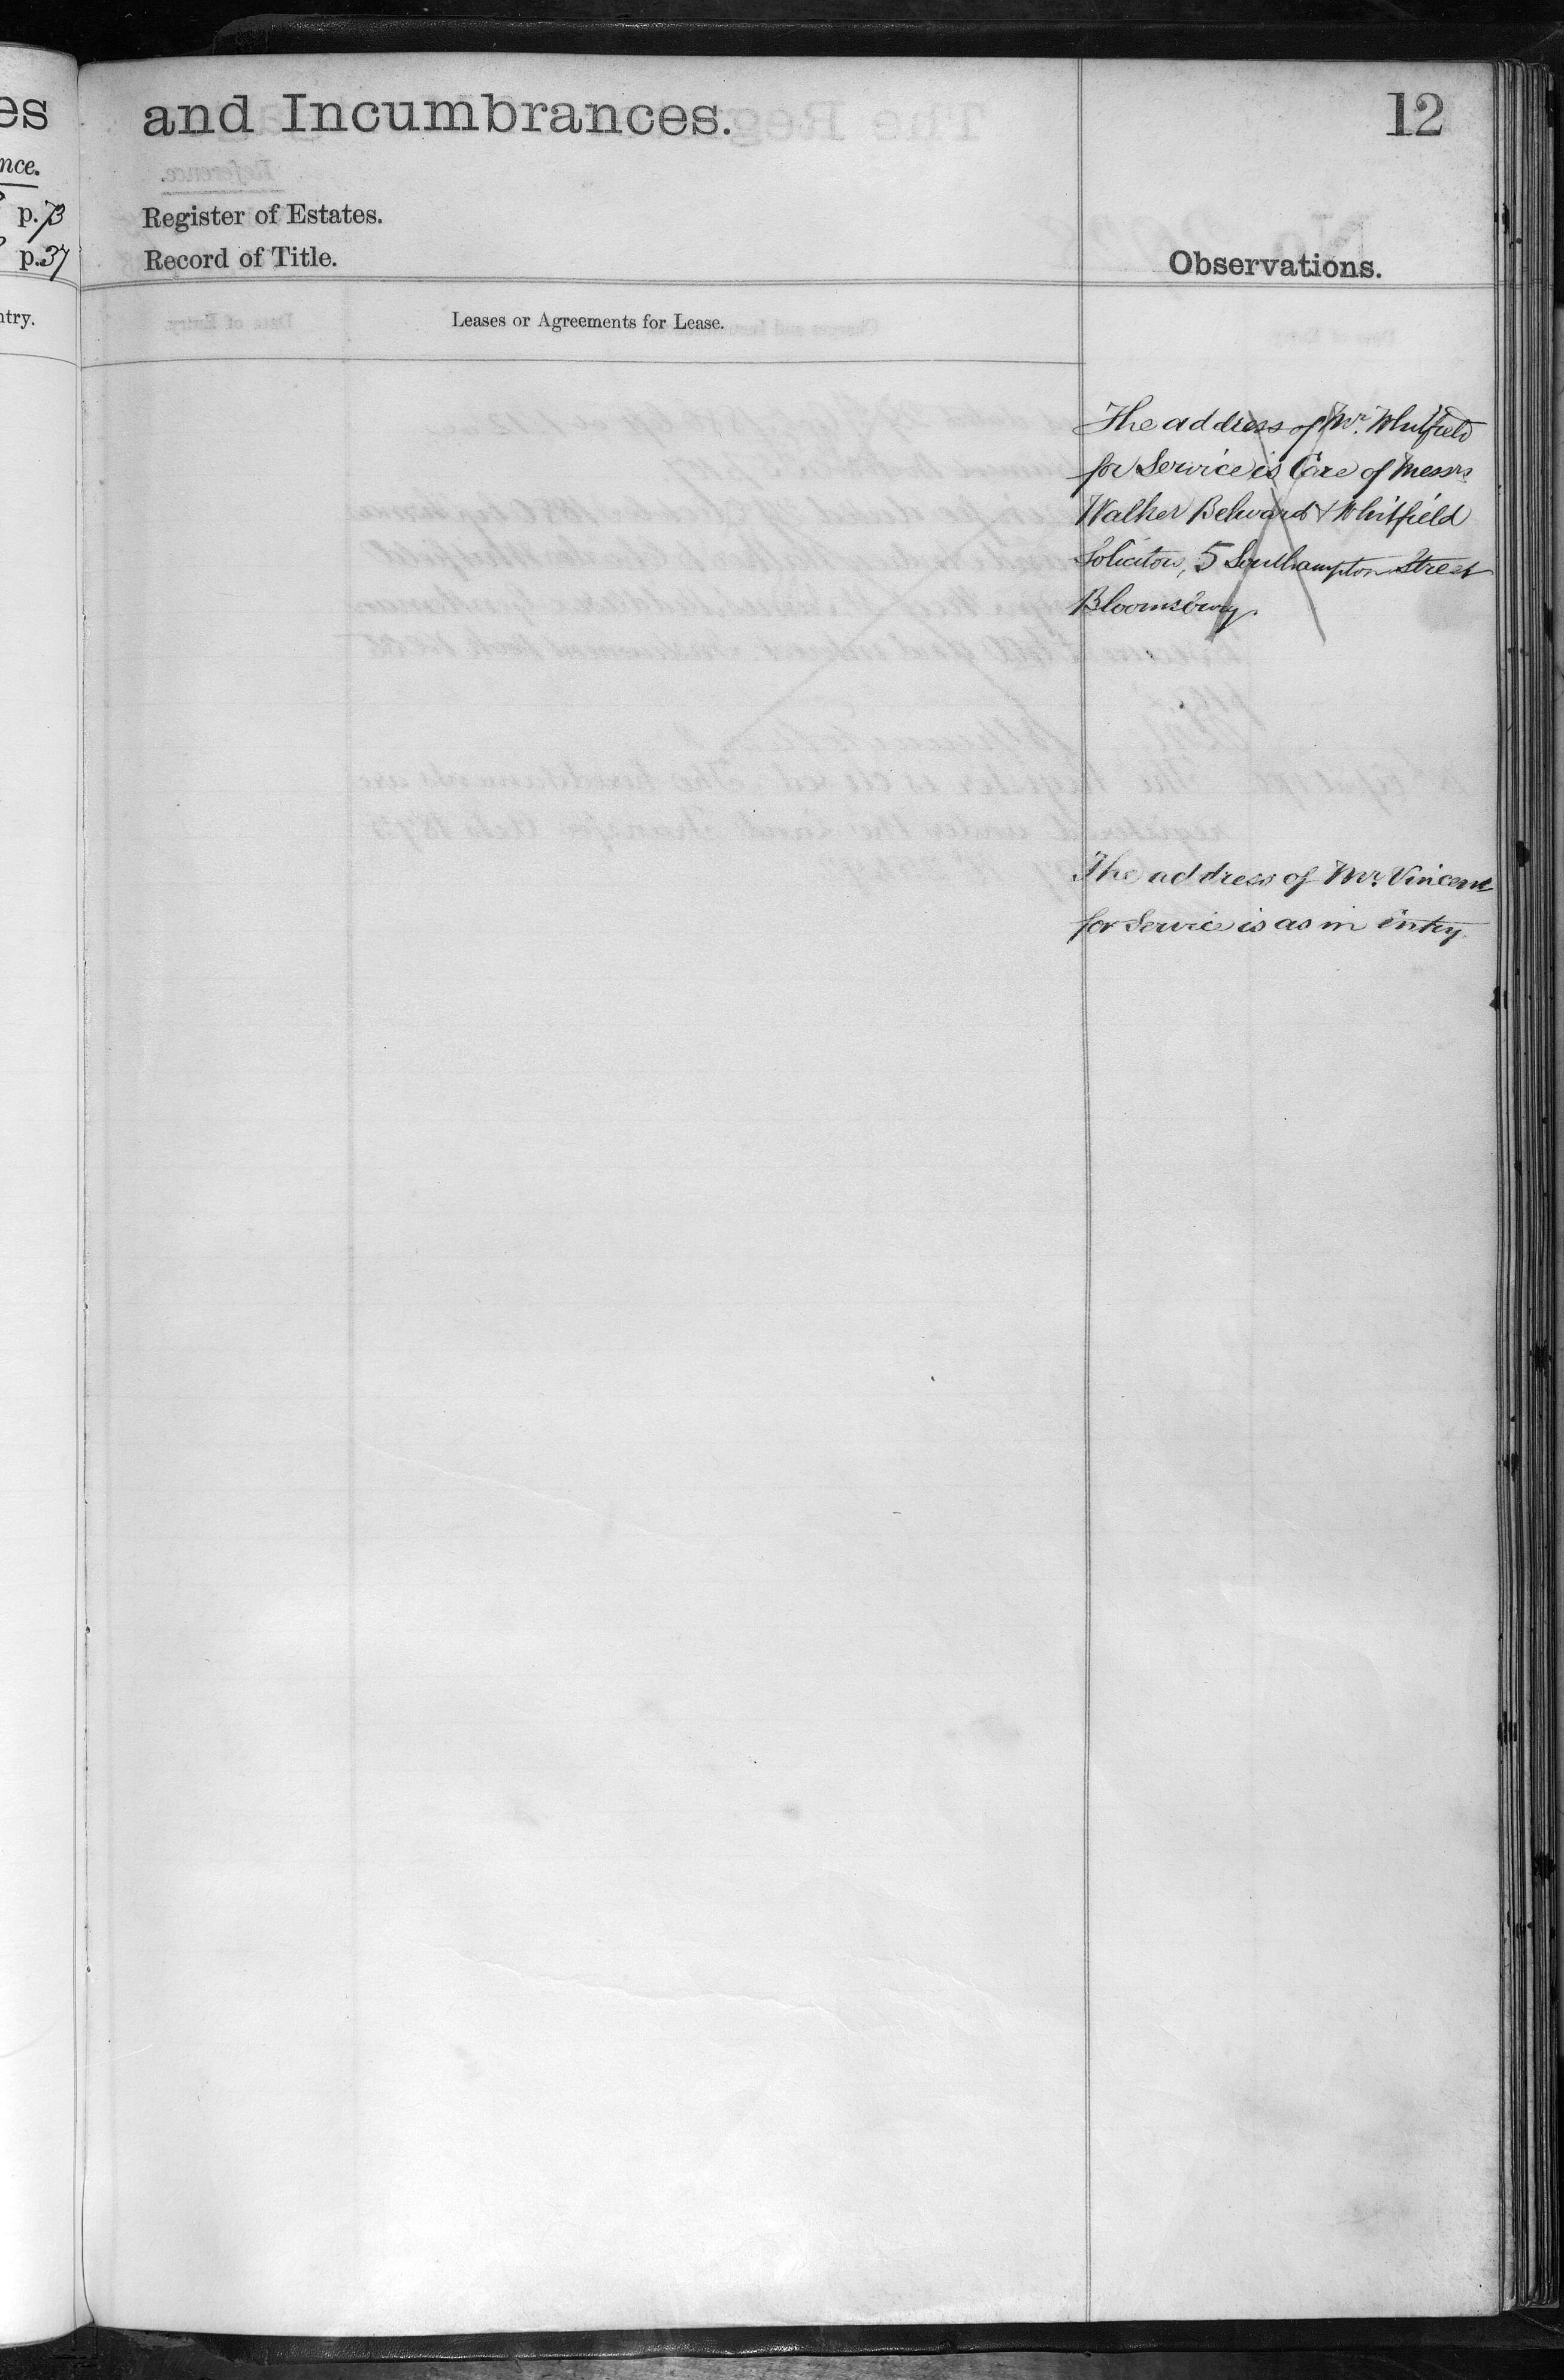 es
and Incumbrances.
12
nce.
p. 73
Register of Estates.
p. 37
Record of Title.
Observations.
ntry.
Leases or Agreements for Lease.
The address of Mr. Whitfield
for Service is Care of Messrs
Walker Belward & Whitfield
Solicitors, 5 Southampton Street
Bloomsbury.
The address of Mr. Vincent
for Service is as in entry.